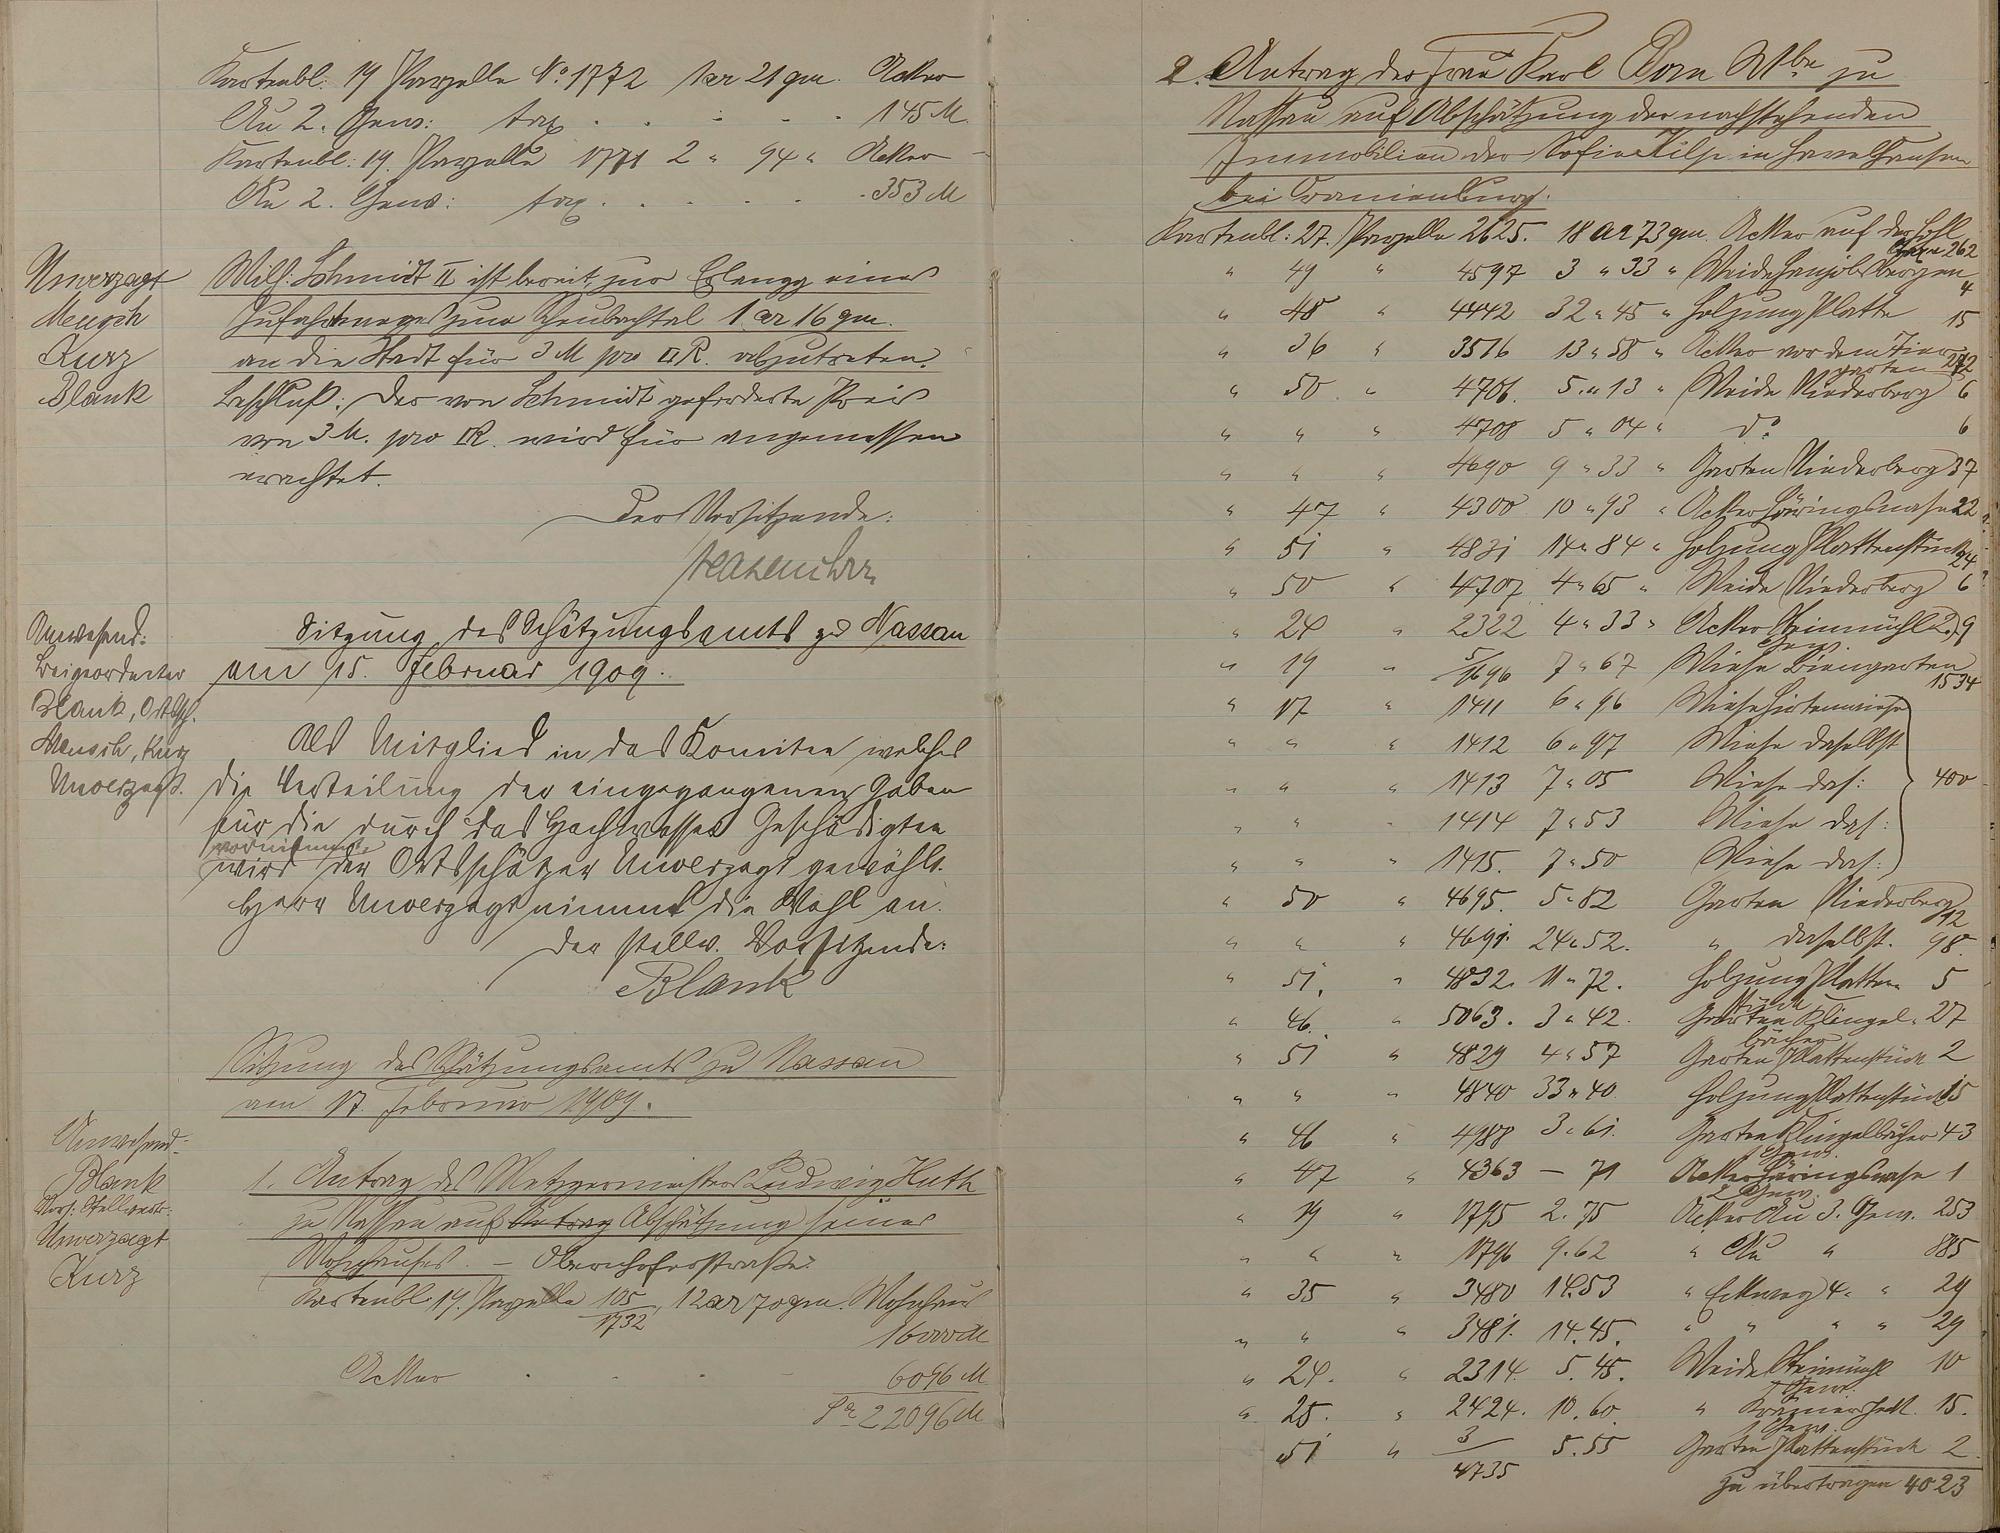 Kartenbl: 19 Parzelle No. 1772 1 ar 21 qm. Acker
Au 2. Gew: tax . . . . . 145 M.
Kartenbl: 19. Parzelle 1771 2 " 94 " Acker
Au 2. Gew: tax . . . . . 353 M
Unverzagt
Mensch
Kurz
Blank
Wilh: Schmidt II ist bereit, zur Erlangg eines
Zufahrtweges zum 1 ar 16 qm.
an die Stadt für 3 M pro □R. abzutreten.
Beschluß: Der von Schmidt geforderte Preis
von 3 M. pro □R. wird für angemessen
erachtet.
Der Vorsitzende:
Anwesend:
Beigeordneter
Blank, Ortssch.
Mensch, Kurz
Unverzagt.
Sitzung des Schätzungsamts zu Nassau
am 15. Februar 1909.
Als Mitglied in das Komitee, welches
die Verteilung der eingegangenen Gaben
für die durch das Hochwasser Geschädigten
vornimmt
wird der Ortsschätzer Unverzagt gewählt.
Herr Unverzagt nimmt die Wahl an.
Der stellv. Vorsitzende:
Blank
Sitzung des Schätzungsamts zu Nassau
am 17. Februar 1909.
Anwesend:
Blank
Vors: Stellvertr:
Unverzagt
Kurz
1. Antrag des Metzgermeisters Ludwig Huth
zu Nassau auf Antrag Abschätzung seines
Wohnhauses. – Obernhoferstraße.
Kartenbl: 19. Parzelle 105/1732, 12 ar 70 qm. Wohnhaus
16000 M
Acker . . . 6096 M
Sa 22096 M
2. Antrag der Frau Karl Born Wbe zu
Nassau auf Abschätzung der nachstehenden
Immobilien der Sofie Hilp in Havelhausen
bei Oranienburg.
Kartenbl: 27. Parzelle 2625. 18 ar 73 qm. Acker auf der Hohl
262
" 49 " 4597 3 " 33 " Weide 4
" 48 " 4442 32 " 45 " Holzung Platte 15
" 36 " 3516 13 " 58 " Acker vor dem Tier
garten 272
" 50 " 4706. 5 " 13 " Weide Niederberg 6
" " " 4708 5 " 04 " do 6
" " " 4690 9 " 33 " Garten Niederberg 37
" 47 " 4300 10 " 93 " Acker Häringsnase 22
" 51 " 4831 14 " 84 " Holzung Plattenstück 24
" 50 " 4707 4 " 65 " Weide Niederberg 6
" 24 " 2322 4 " 33 " Acker Steinmühl 2. 9
Gew.
" 19 " 5/1696 7 " 67 Wiese Biengarten
1534
" 17 " 1411 6 " 96 Wiese Hirtenwiese
" " " 1412 6 " 97 Wiese daselbst
" " " 1413 7 " 05 Wiese das: 400
" " " 1414 7 " 53 Wiese das:
" " " 1415. 7 " 50 Wiese das:
" 50 " 4695. 5 " 82 Garten Niederberg
12
" " " 4691. 24 " 52. " daselbst. 98.
" 51. " 4832. 11 " 72. Holzung Platten 5
stück
" 46. " 5063. 3 " 42. Garten Klingel- 27
bücher
" 51 " 4829 4 " 57 Garten Plattenstück 2
" " " 4840 33 " 40. Holzung Plattenstück 15
" 46 " 4988 3 " 61. Garten Klingelbücher 43
" 47 " 4363 – 71 Acker Häringsnase 1
2 Gew.
" 19 " 1795 2. 75 Acker Au 3. Gew. 253
" " " 1796 9. 62 " Au " 885
" 35 " 3480 14. 53 " Eckweg 4. " 29
" " " 3481. 14. 45. " " " " 29
" 24. " 2314. 5. 45. Weide Steinmühl 10
1 Gew.
" 25. " 2424. 10. 60. " 15.
1 Gew.
51 " 3/4735 5. 55 Garten Plattenstück 2
zu übertragen 4023